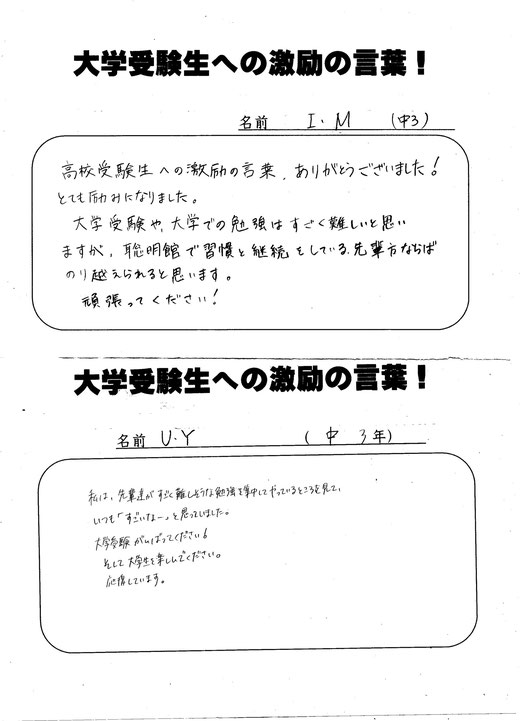 大学受験生への激励の言葉！
名前 I.M （中3）
高校受験生への激励の言葉、ありがとうございました！
とても励みになりました。
大学受験や、大学での勉強はすごく難しいと思い
ますが、聡明館で習慣と継続をしている先輩方ならば
のり越えられると思います。
頑張ってください！
大学受験生への激励の言葉！
名前 U.Y （中 3年）
私は、先輩達がすごく難しそうな勉強を集中してやっているところを見て、
いつも「すごいなー」と思っていました。
大学受験がんばってください！
そして大学生を楽しんでください。
応援しています。